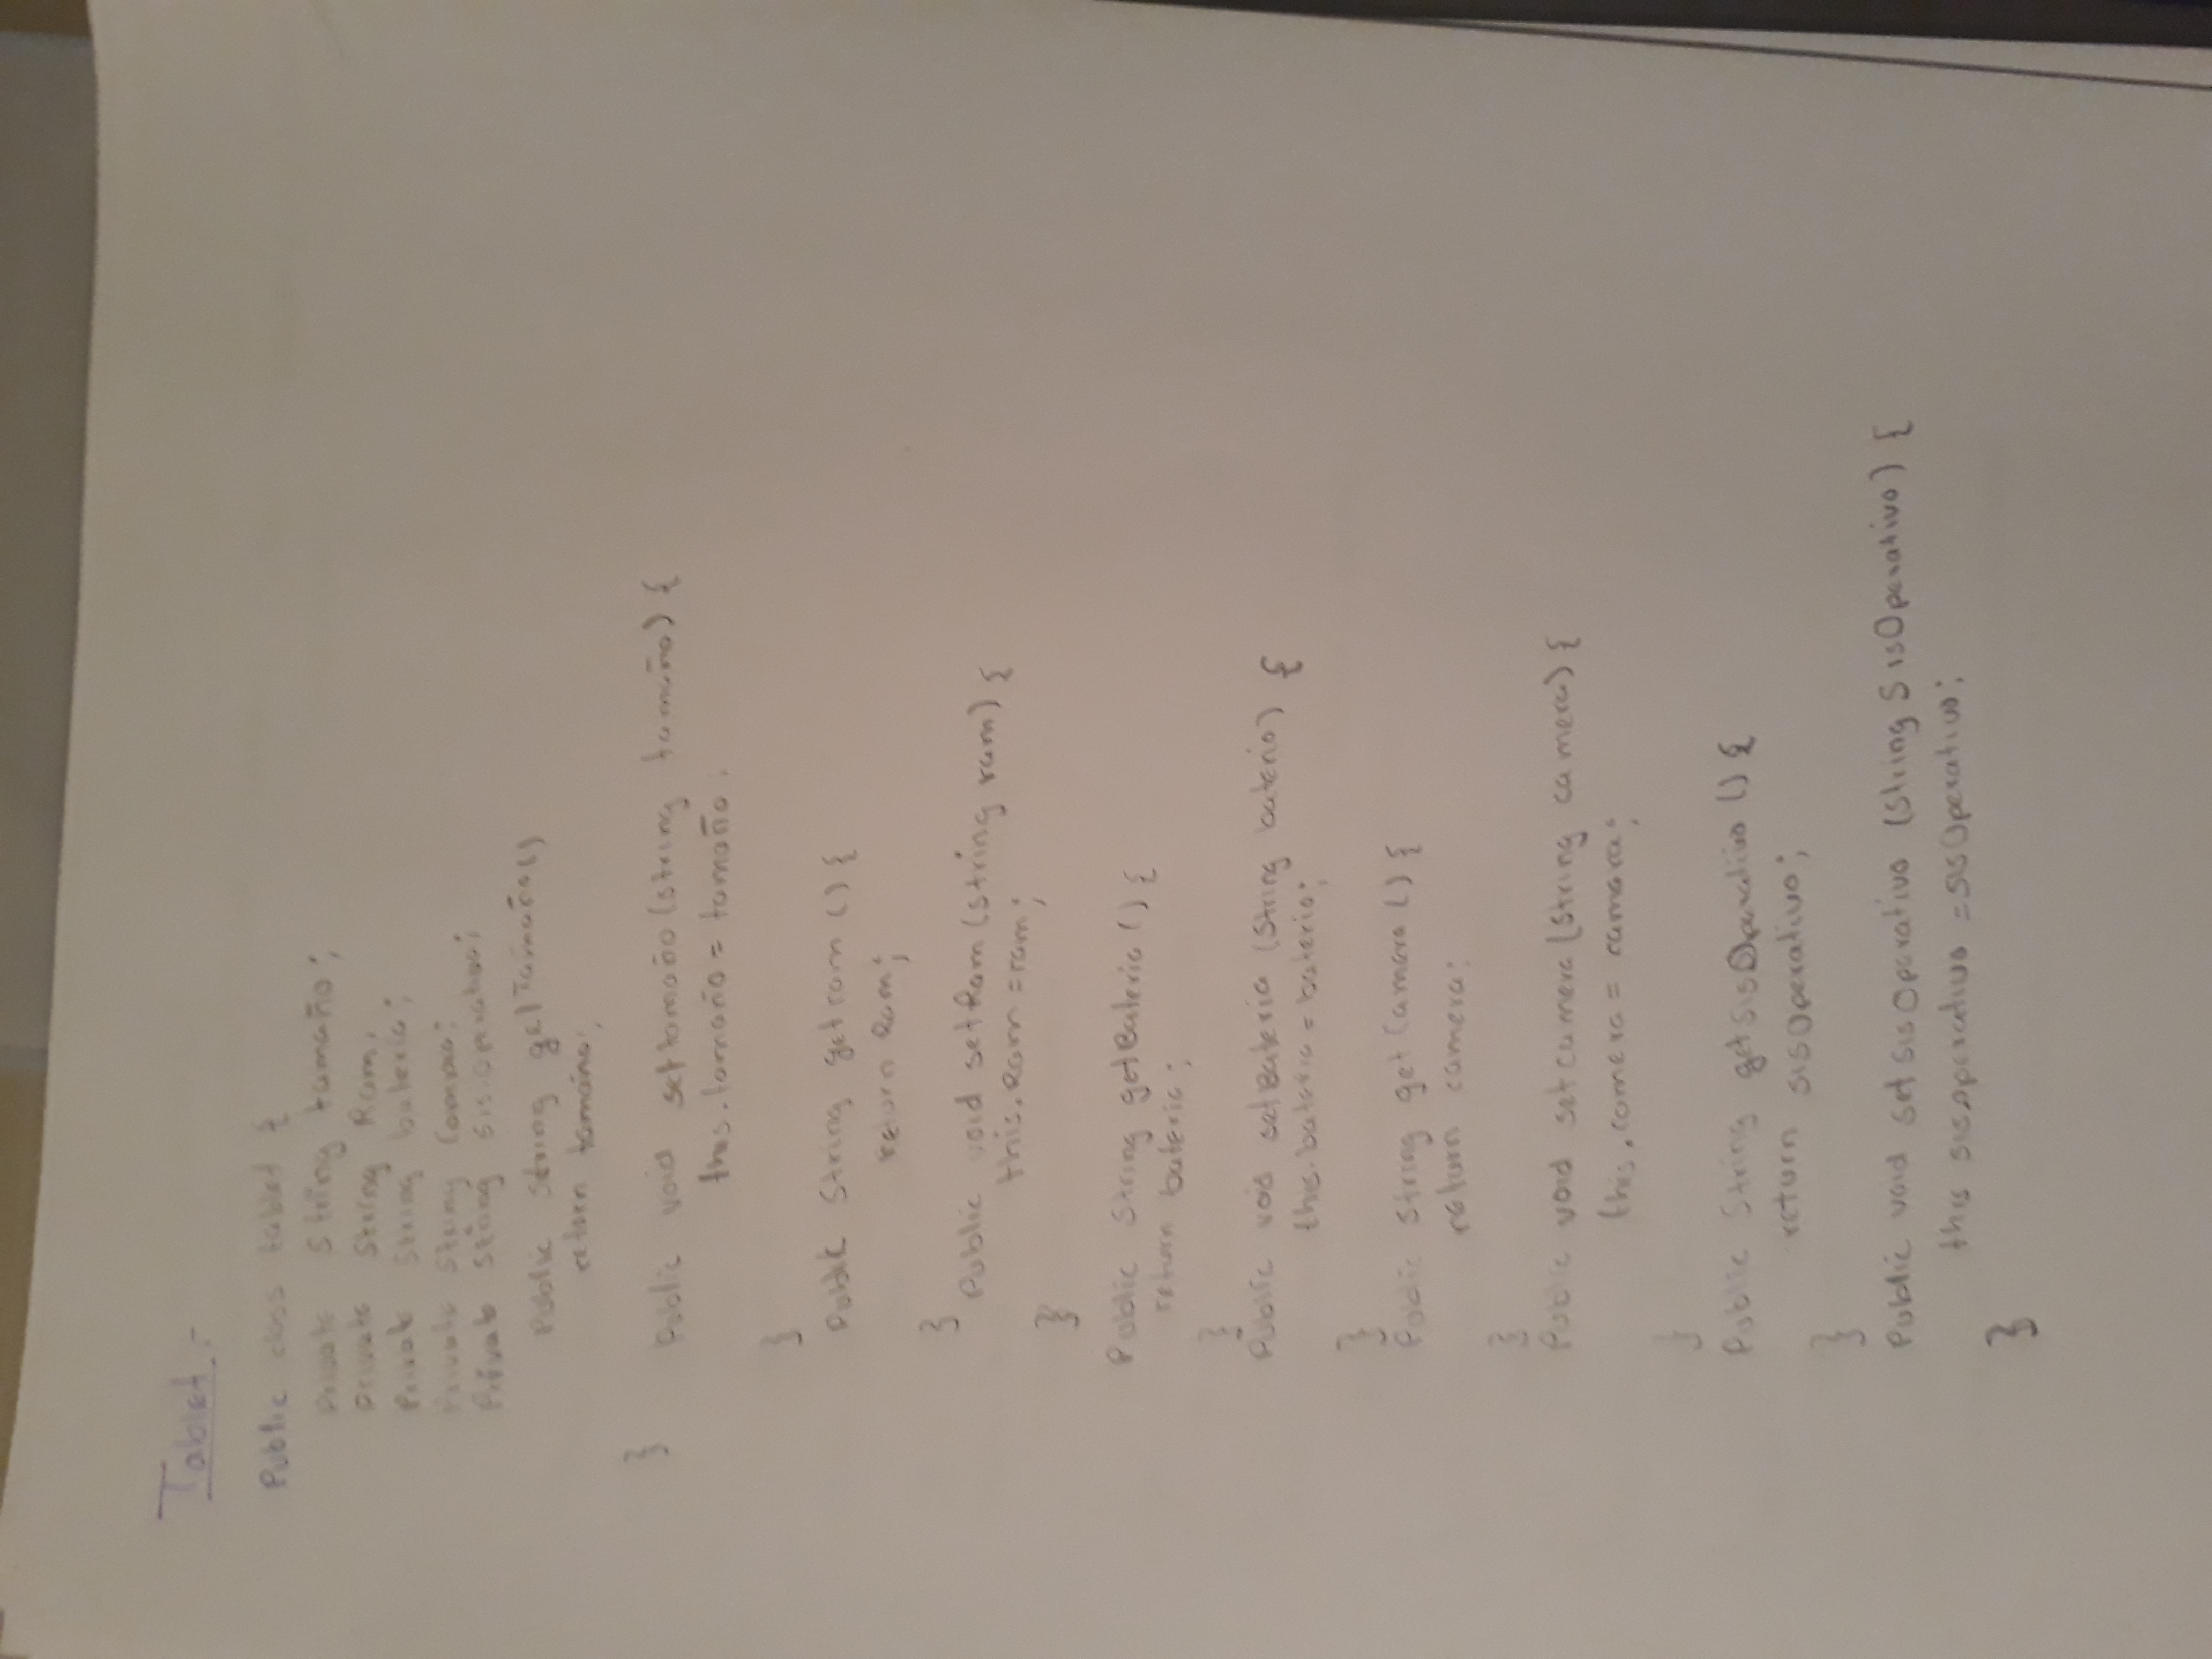 Tablet.-
Public class tablet {
Private String tamaño;
Private String Ram,
Private String bateria;
Private String Camara;
Private String sisOperativo;
Public String getTamaño()
return tamaño;
}
Public void settamaño (string tamaño) {
this.tamaño = tamaño.
}
Public String getram () {
return Ram;
}
Public void setRam (string ram) {
this.Ram =ram;
}
Public String getBateria () {
return bateria;
}
Public void setBateria (String bateria) {
this.bateria = bateria;
}
Public String getCamara () {
return camera;
}
Public void setcamera (String camera) {
this.camera = camara;
}
Public String getsisOperativo () {
return sisOperativo;
}
Public void setsisOperativo (String SisOperativo) {
this sisoperativo =sisOperativo;
}